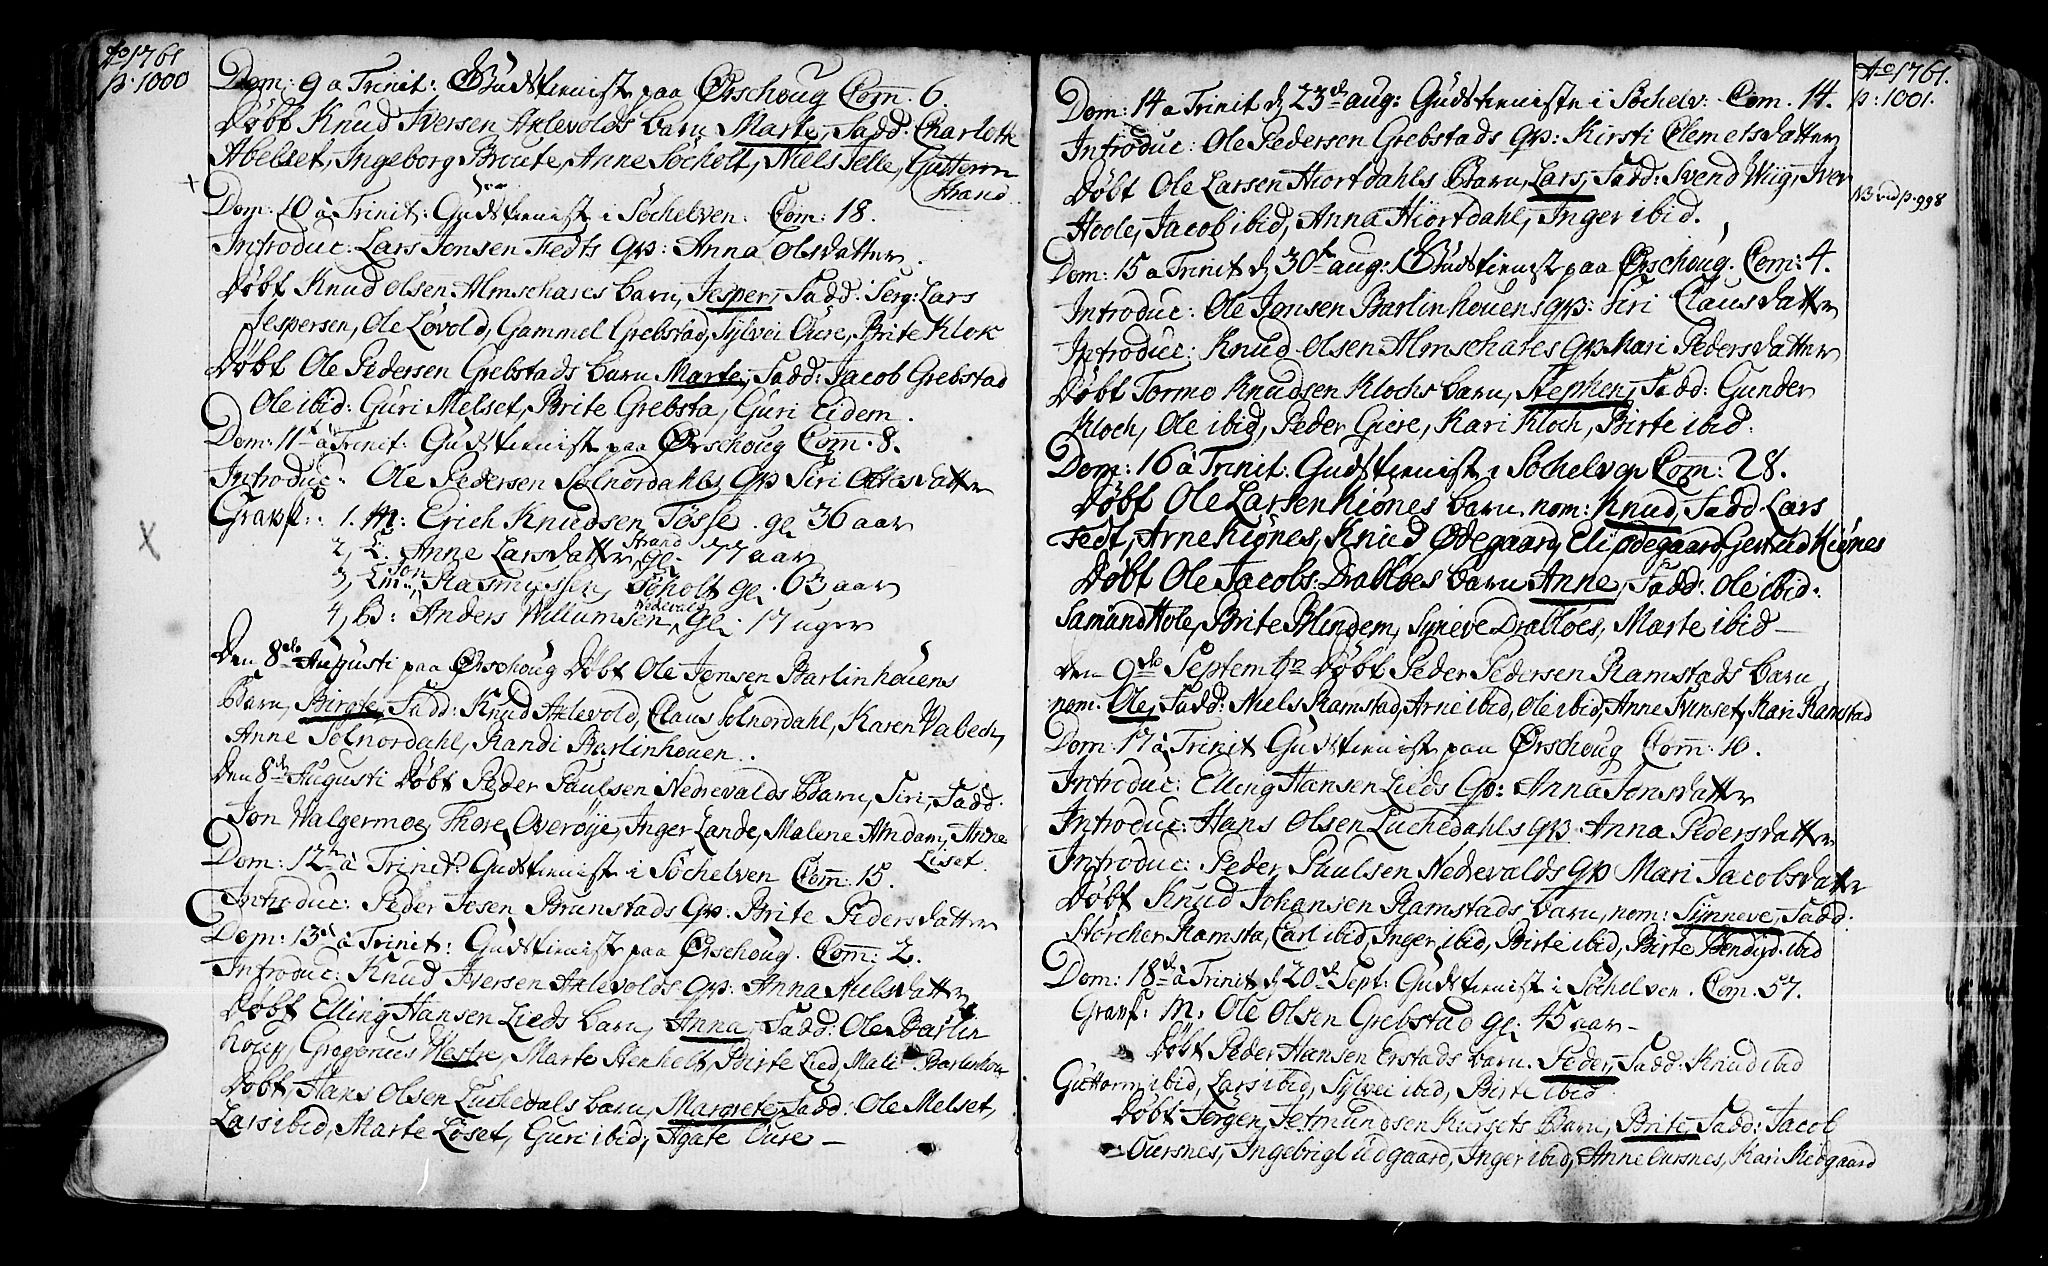 Ao 1761
p: 1000
Dom: 9 a Trinit: Gudstienist paa Ørschoug Com̄. 6.
Døbt Knud Iversen Aklevolds barn Marte, Fadd: Charlotte
Abelset, Ingeborg Broute, Anne Søcholt, Niels Telle, Guttorm
Strand
Dom: 10 a Trinit: Gudstienist i Søchelven: Com: 18.
Introduc: Lars Jonsen Fedts qv: Anna Olsdatter.
Døbt Knud Olsen Almschares barn, Jesper, Fadd: Serg: Lars
Jespersen, Ole Løvold, Gammel Grebstad, Sylvei Oure, Brite Klok
Døbt Ole Pedersen Grebstads barn Marte, Fadd: Jacob Grebstad
Ole ibid: Guri Melset, Brite Grebsta, Guri Eidem.
Dom: 11te a Trinit: Gudstienist paa Ørschoug Com̄. 8.
Introduc: Ole Pedersen Solnordahls qv Siri Ottosdatter
Gravf: 1. M: Erich Knudsen Tøsse. gl 36 aar
2, E. Anne Larsdatter Strand gl. 77 aar
3, Em. Jon Rasmussen, Søholt gl. 63 aar
4, B: Anders Willumsen Nedrevald gl. 17 uger
Den 8de Augusti paa Ørschoug Døbt Ole Jensen Barlinhouens
Barn, Birgte, Fadd: Knud Aklevold, Claus Solnordahl, Karen Vabech,
Anne Solnordahl, Randi Barlinhouen.
Den 8de Augusti Døbt Peder Paulsen Nedrevalds Barn, Siri, Fadd:
Jon Walgermoe, Thore Overøye, Inger Lande, Malene Amdam, Anne
Liset
Dom: 12te a Trinit: Gudstienist i Søchelven Com̄: 15.
Introduc: Peder Josen Brunstads qv: Brite Pedersdatter
Dom: 13de a Trinit: Gudstienist paa Ørschoug. Com̄: 2.
Introduc: Knud Iversen Aklevolds qv: Anna Nielsdatter
Døbt Elling Hansen Lieds barn, Anna, Fadd: Ole Barlin
houg, Gregorius Westre, Marte Stenholt, Birte Lied, Mali Barlinhou
Døbt, Hans Olsen Luchedals barn, Margrete, Fadd: Ole Melset,
Lars ibid, Marte Løset, Guri ibid, Agate Oure –
Ao 1761.
p: 1001.
Dom: 14 a Trinit d 23de aug: Gudstieniste i Søchelv. Com. 14.
Introduc: Ole Pedersen Grebstads qv: Kirsti Clemetsdatter
Døbt Ole Larsen Hiortdahls Barn, Lars, Fadd: Svend Wiig, Iver
NB vid p. 998
Hoole, Jacob ibid, Anna Hiortdahl, Inger ibid.
Dom: 15 a Trinit d 30te aug: Gudstienist paa Ørschoug. Com: 4.
Introduc: Ole Jensen Barlinhouens qv: Siri Clausdatter
Introduc: Knud Olsen Almschares qv Mari Pedersdatter
Døbt Tormo Knudsen Klochs barn, Stephen, Fadd: Gunder
Kloch, Ole ibid, Peder Giere, Kari Kloch, Birte ibid.
Dom: 16 a Trinit: Gudstienist i Søchelven Com: 28.
Døbt Ole Larsen Kiønes barn, nom: Knud, Fadd. Lars
Fedt, Arne Kiønes, Knud Ødegaard, Eli Ødegaard, Gertrud Kiønes
Døbt Ole Jacobs: Drabløes barn Anne, Fadd: Ole ibid:
Samund Hole, Brite Blindem, Syneve Drabløes, Marte ibid –
den 9de Septembr Døbt Peder Pedersen Ramstads barn
nom. Ole, Fadd: Niels Ramstad, Arne ibid, Ole ibid, Anne Svinset, Kari Ramstad
Dom: 17 a Trinit Gudstienist paa Ørschoug Com̄: 10.
Introduc: Elling Hansen Lieds qv: Anna Jonsdatter
Introduc: Hans Olsen Luchedahls qv. Anna Pedersdatter
Introduc: Peder Paulsen Nedrevalds qv Mari Jacobsdatter
Døbt Knud Johansen Ramstads barn, nom: Synneve, Fadd:
Størcher Ramsta, Carl ibid, Inger ibid, Birte ibid, Birte Bendixd. ibid
Dom: 18de a Trinit d 20de Sept: Gudstienist i Søchelven. Com. 57.
Gravf: M. Ole Olsen Grebstad gl. 45 aar –
Døbt Peder Hansen Erstads barn. Peder, Fadd: Knud ibid
Guttorm ibid, Lars ibid, Sylvei ibid, Birte ibid
Døbt Jørgen Jetmundsen Hursets Barn, Brite, Fadd: Jacob
Oursnes, Ingebrigt Uedgaard, Inger ibid, Anne Oursnes, Kari Midgaard